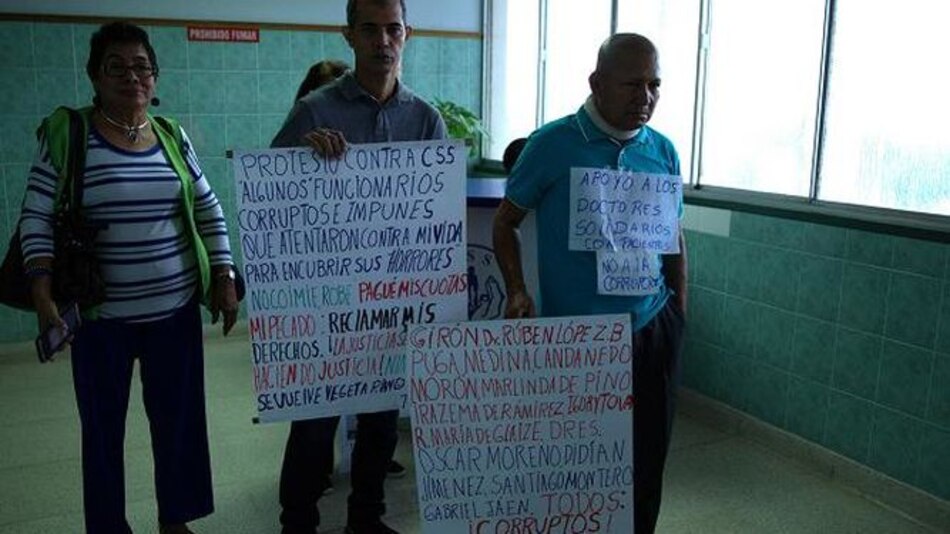 PROHIBIDO FUMAR
PROTESTO CONTRA CSS
"ALGUNOS" FUNCIONARIOS
CORRUPTOS E IMPUNES
QUE ATENTARON CONTRA MI VIDA
PARA ENCUBRIR SUS HORRORES
NO COIMIE ROBE PAGUÉ MIS CUOTAS
MI PECADO: RECLAMAR MIS
DERECHOS. ¡LA JUSTICIA SE
HACIENDO JUSTICIA!
SE VUELVE VEGETARIANO
APOYO A LOS
DOCTORES
SOLIDARIOS
CON PACIENTES
NO A LA
CORRUPCION
GIRÓN Dr. RÚBEN LÓPEZ. B
PUGA, MEDINA, CANDANEDO
NORÓN, MARLINDA DE PINO
IRAZEMA DE RAMÍREZ, IGUAY TOVA
R. MARÍA DE GLAIZE, DRES.
OSCAR MORENO DIDÍAN
JÍMENEZ, SANTIAGO MONTERO
GABRIEL JAÉN, TODOS:
¡CORRUPTOS!